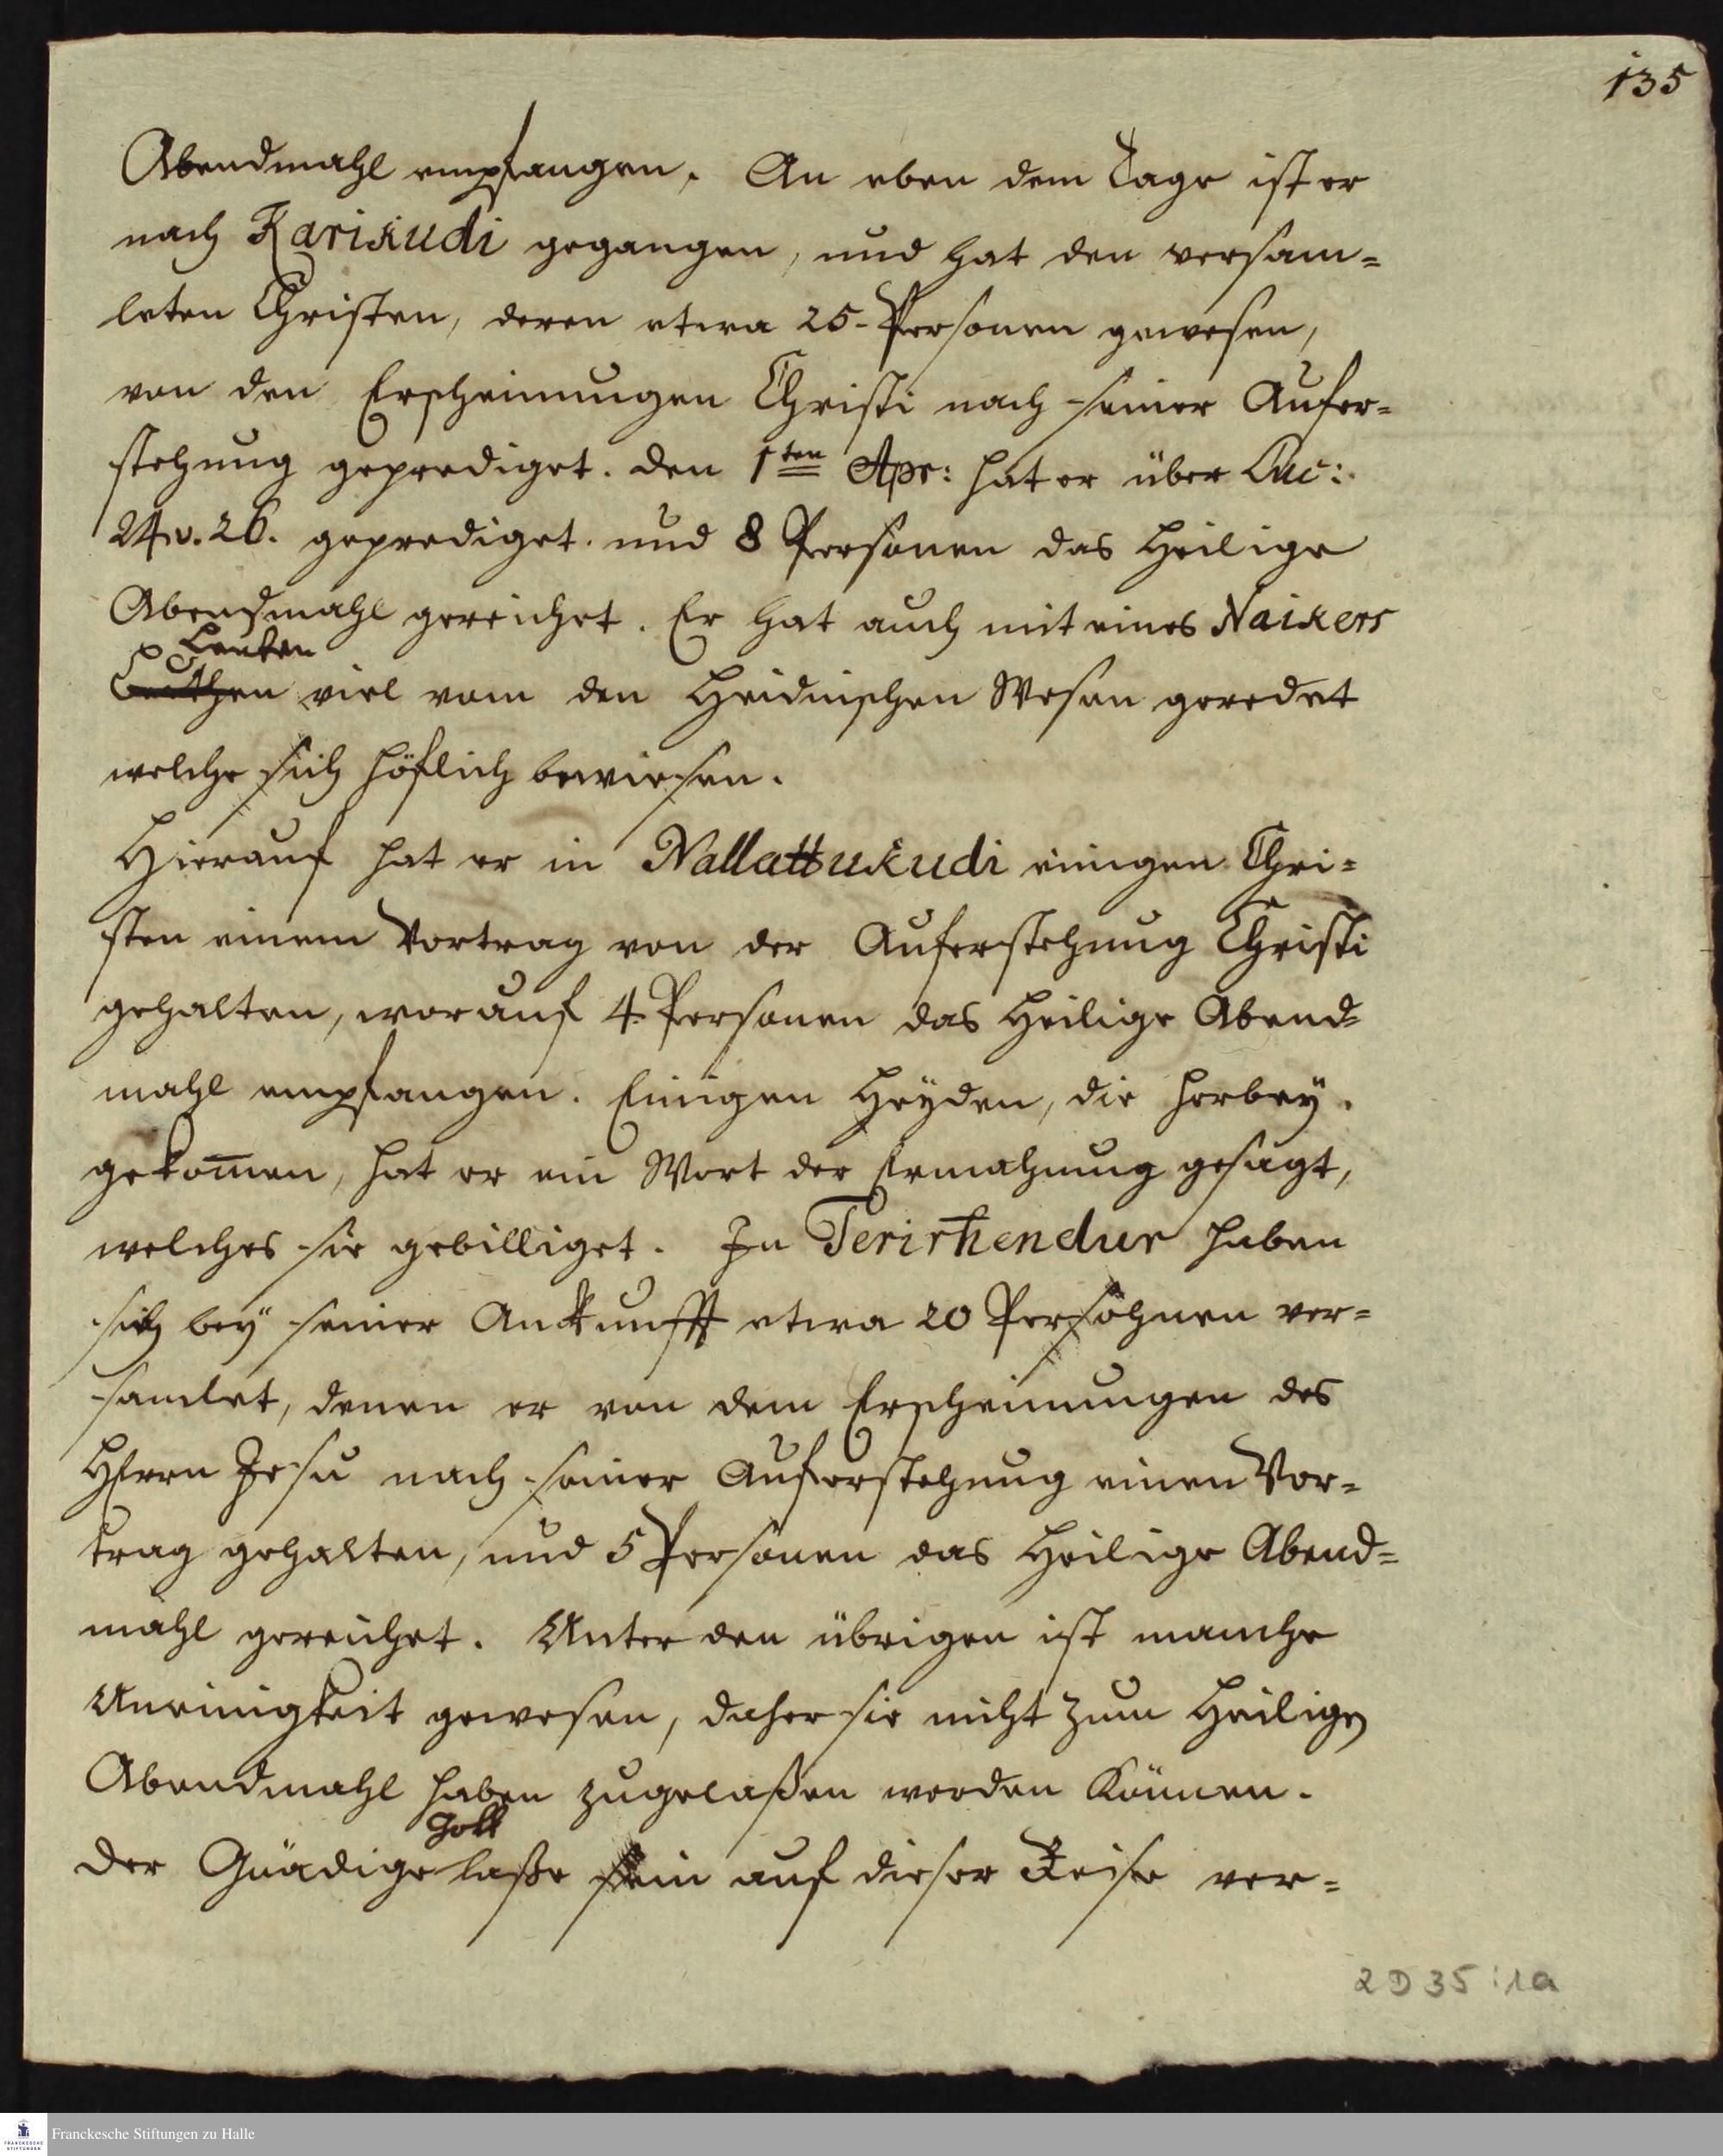 135
Abendmahl empfangen. An eben dem Tage ist er
nach Karikudi gegangen, und hat den versam=
leten Christen, deren etwa 25 Personen gewesen,
von den Erscheinungen Christi nach seiner Aufer=
stehung geprediget. den 1ten Apr: hat er über Luc:
24 v. 26. geprediget. und 8 Personen das Heilige
Abendmahl gereichet. Er hat auch mit eines Naikers
Leuten
viel vom den Heidnischen Wesen geredet
welche sich höflich bewiesen.
Hierauf hat er in Nallattukudi einigen Chri=
sten einem Vortrag von der Auferstehung Christi
gehalten, worauf 4. Personen das Heilige Abend=
mahl empfangen. Einigen Heÿden, die herbeÿ.
gekom̅en, hat er ein Wort der Ermahnung gesagt,
welches sie gebilliget. In Terirhendur haben
sich beÿ seiner Anckunfft etwa 20 Persohnen ver=
samlet, denen er von dem Erscheinungen des
HErrn Jesu nach seiner Auferstehung einen Vor=
trag gehalten, und 5 Personen das Heilige Abend=
mahl gereichet. Unter den übrigen ist manche
Uneinigkeit gewesen, daher sie nicht zum Heiligen
Abendmahl haben zugelaßen werden Können.
Gott
Der Gnädige laße sein auf dieser Reise ver=
2 D 35 : 1a
FRANCKESCHE STIFTUNGEN
Franckesche Stiftungen zu Halle